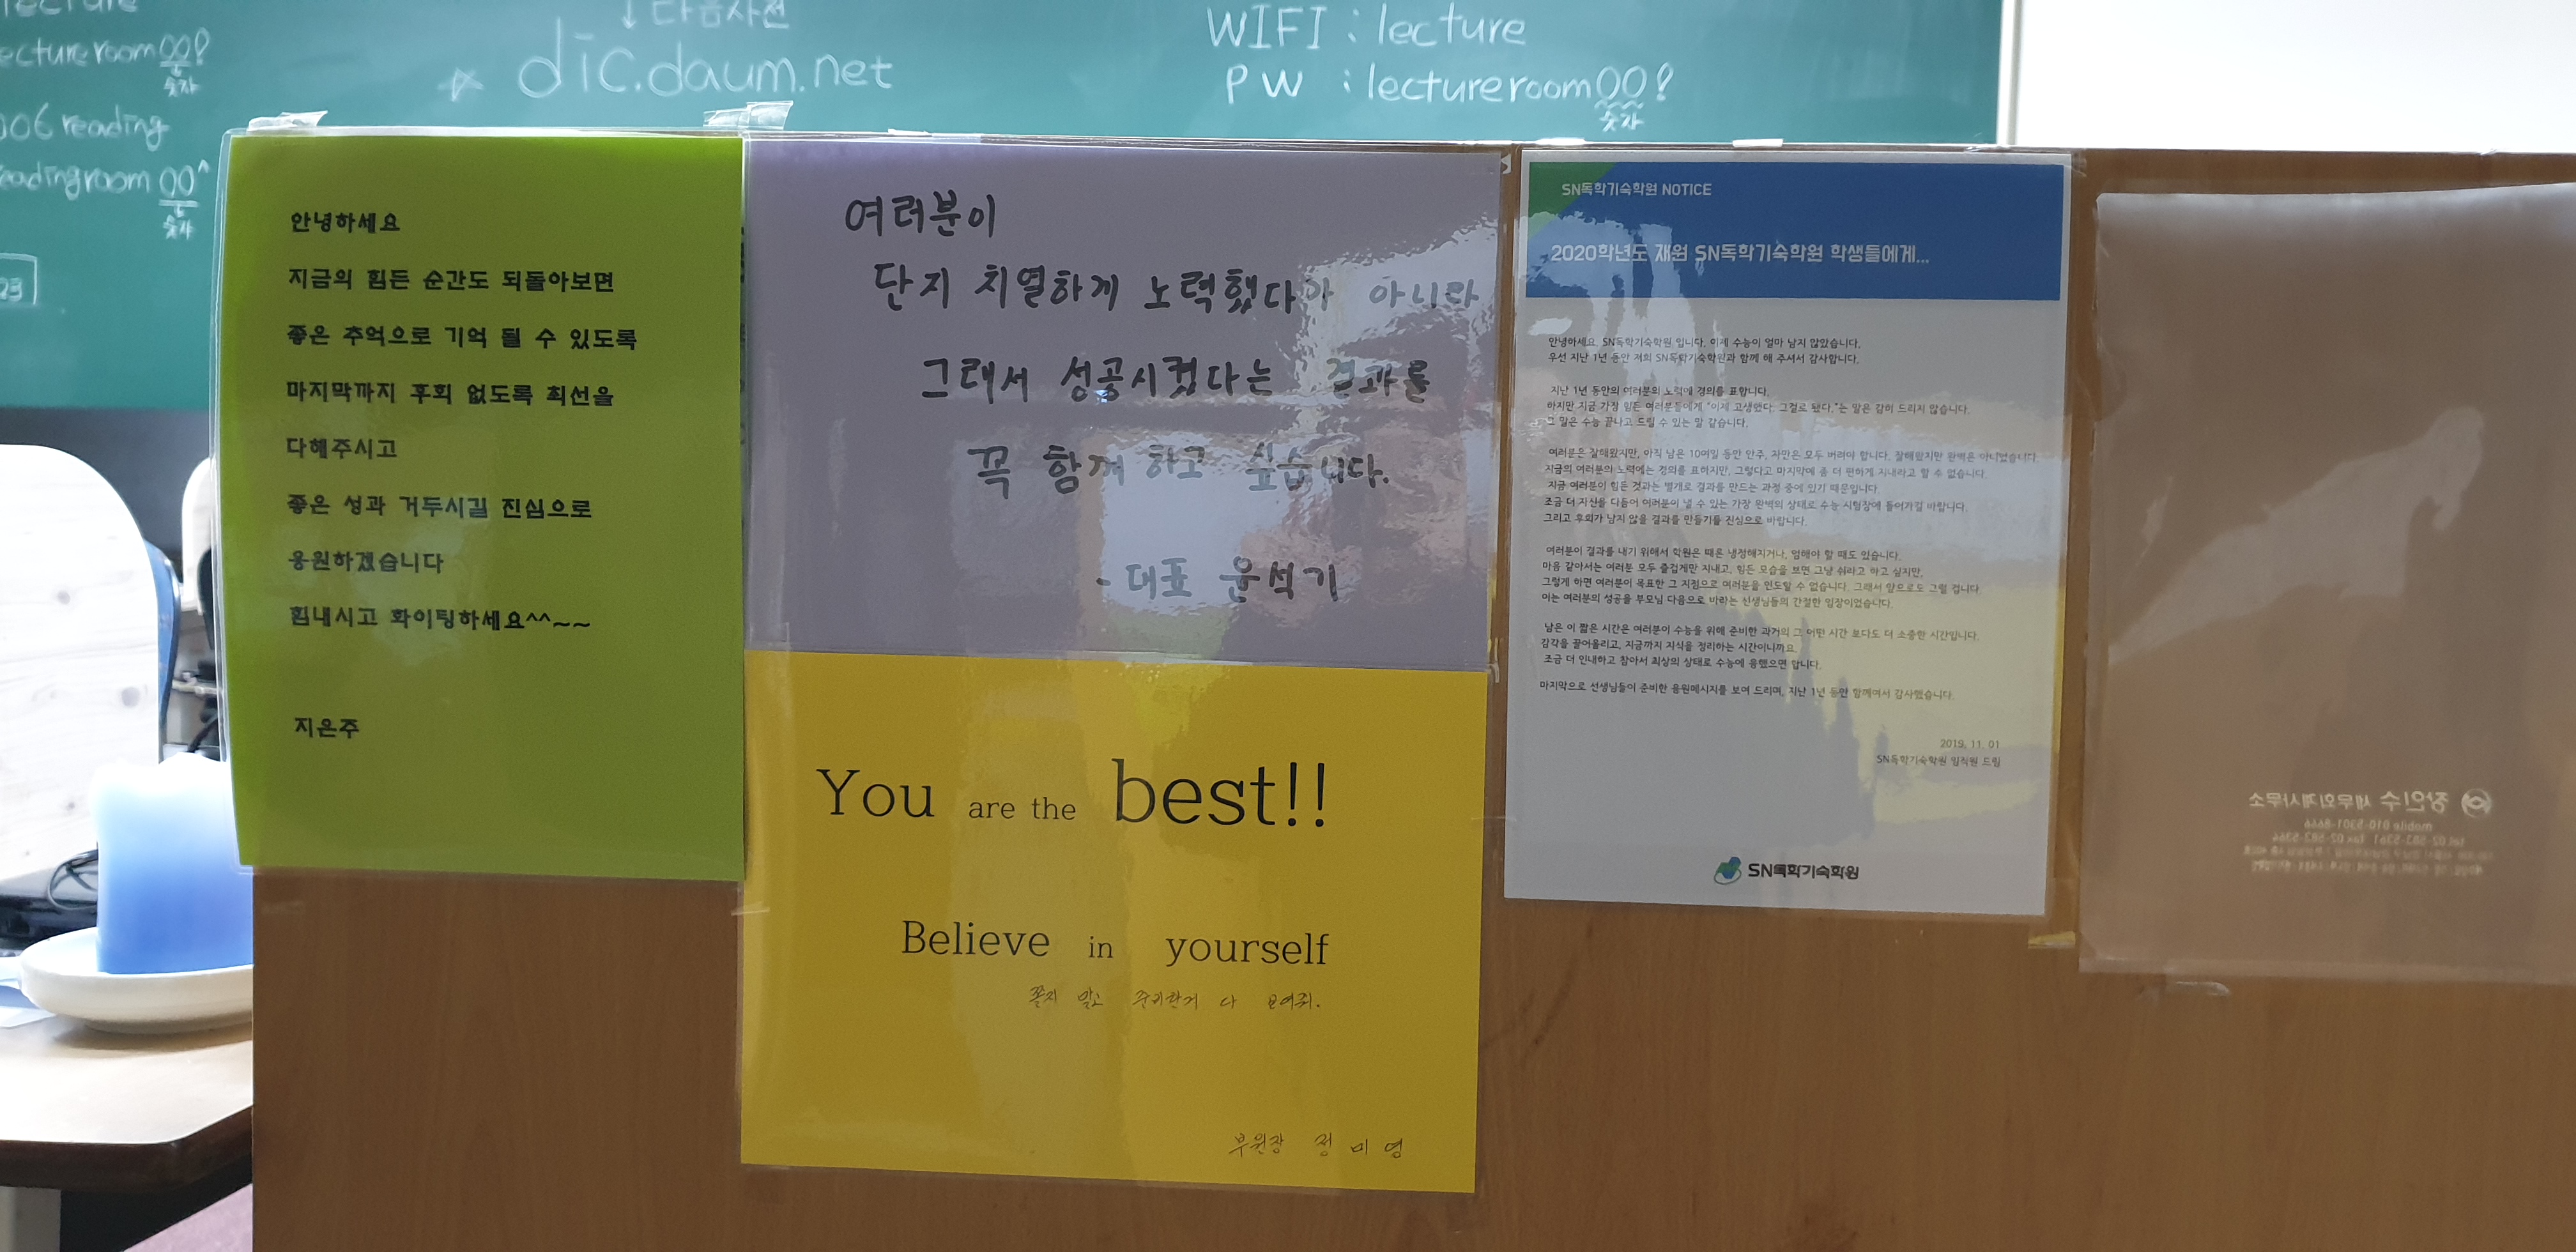 lecture
ectureroom00!
숫자
006 reading
eadingroom 00^
숫자
23
↓ 다음사전
☆ dic.daum.net
WIFI : lecture
PW : lectureroom00!
숫자
안녕하세요
지금의 힘든 순간도 되돌아보면
좋은 추억으로 기억 될 수 있도록
마지막까지 후회 없도록 최선을
다해주시고
좋은 성과 거두시길 진심으로
응원하겠습니다
힘내시고 화이팅하세요^^~~
지은주
여러분이
단지 치열하게 노력했다가 아니라
그래서 성공시켰다는 결과를
꼭 함께 하고 싶습니다.
- 대표 윤석기
You are the best!!
Believe in yourself
쫄지 말고 준비한거 다 보여줘.
부원장 정미영
SN독학기숙학원 NOTICE
2020학년도 재원 SN독학기숙학원 학생들에게...
안녕하세요. SN독학기숙학원 입니다. 이제 수능이 얼마 남지 않았습니다.
우선 지난 1년 동안 저희 SN독학기숙학원과 함께 해 주셔서 감사합니다.
지난 1년 동안의 여러분의 노력에 경의를 표합니다.
하지만 지금 가장 힘든 여러분들에게 "이제 고생했다. 그걸로 됐다."는 말은 감히 드리지 않습니다.
그 말은 수능 끝나고 드릴 수 있는 말 같습니다.
여러분은 잘해왔지만, 아직 남은 10여일 동안 안주, 자만은 모두 버려야 합니다. 잘해왔지만 완벽은 아니었습니다.
지금의 여러분의 노력에는 경의를 표하지만, 그렇다고 마지막에 좀 더 편하게 지내라고 할 수 없습니다.
지금 여러분이 힘든 것과는 별개로 결과를 만드는 과정 중에 있기 때문입니다.
조금 더 자신을 다듬어 여러분이 낼 수 있는 가장 완벽의 상태로 수능 시험장에 들어가길 바랍니다.
그리고 후회가 남지 않을 결과를 만들기를 진심으로 바랍니다.
여러분이 결과를 내기 위해서 학원은 때론 냉정해지거나, 엄해야 할 때도 있습니다.
마음 같아서는 여러분 모두 즐겁게만 지내고, 힘든 모습을 보면 그냥 쉬라고 하고 싶지만,
그렇게 하면 여러분이 목표한 그 지점으로 여러분을 인도할 수 없습니다. 그래서 앞으로도 그럴 겁니다.
이는 여러분의 성공을 부모님 다음으로 바라는 선생님들의 간절한 입장이었습니다.
남은 이 짧은 시간은 여러분이 수능을 위해 준비한 과거의 그 어떤 시간 보다도 더 소중한 시간입니다.
감각을 끌어올리고, 지금까지 지식을 정리하는 시간이니까요.
조금 더 인내하고 참아서 최상의 상태로 수능에 응했으면 합니다.
마지막으로 선생님들이 준비한 응원메시지를 보여 드리며, 지난 1년 동안 함께여서 감사했습니다.
2019. 11. 01
SN독학기숙학원 임직원 드림
SN독학기숙학원
장인수 세무회계사무소
mobile 010-5301-8644
tel 02-583-5361 fax 02-583-5364